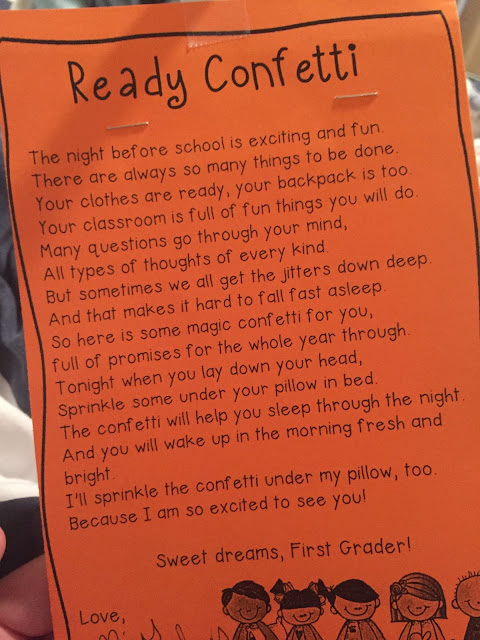 Ready Confetti
The night before school is exciting and fun.
There are always so many things to be done.
Your clothes are ready, your backpack is too.
Your classroom is full of fun things you will do.
Many questions go through your mind,
All types of thoughts of every kind.
But sometimes we all get the jitters down deep.
And that makes it hard to fall fast asleep.
So here is some magic confetti for you,
full of promises for the whole year through.
Tonight when you lay down your head,
Sprinkle some under your pillow in bed.
The confetti will help you sleep through the night.
And you will wake up in the morning fresh and
bright.
I'll sprinkle the confetti under my pillow, too.
Because I am so excited to see you!
Sweet dreams, First Grader!
Love,